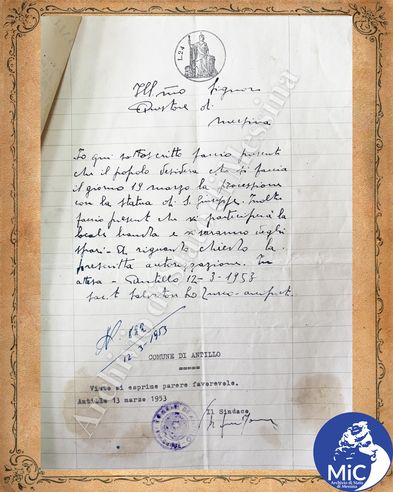 L.24
Ill.mo Signor
Questore di
Messina
Io qui sottoscritto faccio presente
che il popolo desidera che si faccia
il giorno 19 marzo la processione
con la statua di S. Giuseppe. Inoltre
faccio present che vi parteciperà la
locale banda e vi saranno degli
spari - A riguardo chiedo la
prescritta autorizzazione. In
attesa - Antillo 12-3-1953
sac.t Salvatore Lo Turco
12-3-1953
COMUNE DI ANTILLO
=====
Visto si esprime parere favorevole.
Antillo 13 marzo 1953
Il Sindaco
Archivio di Stato di Messina
MiC
Archivio di Stato
di Messina